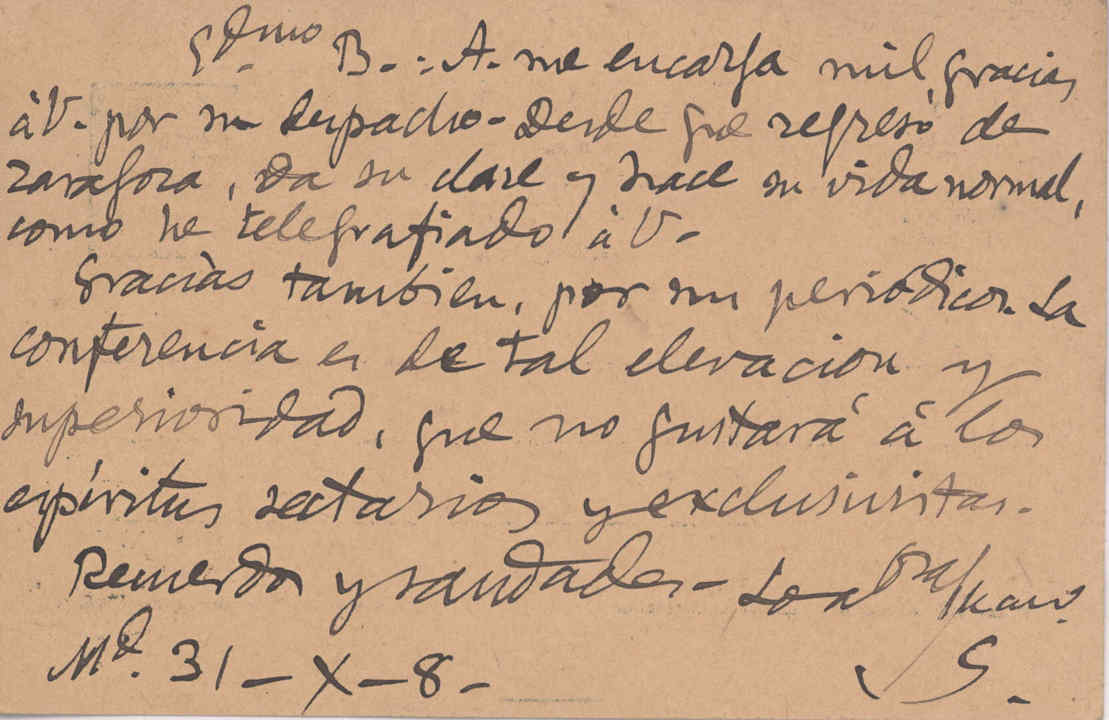 B. A. me encarga mil gracias
á V. por su despacho - Desde que regresó de
Zaragoza, da su clase y hace su vida normal,
como he telegrafiado á V -
Gracias tambien, por su periódico. La
conferencia es de tal elevacion y
superioridad, que no gustará á los
espíritus sectarios y exclusivistas.
Recuerdos y saudades -
Md. 31 - X - 8 - S.